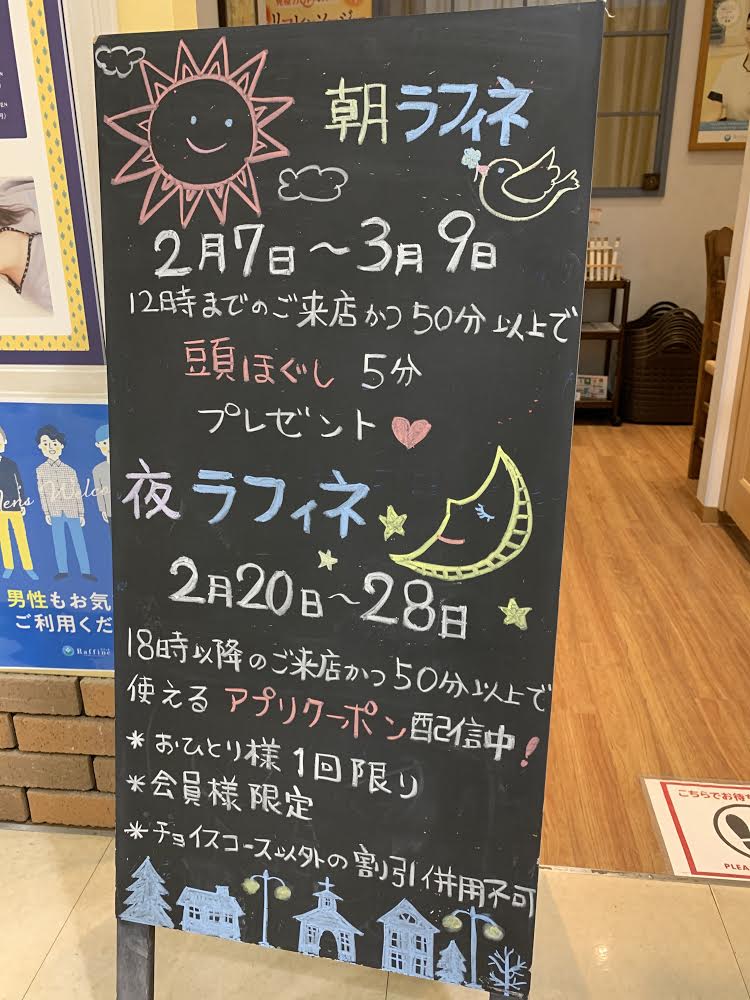 朝ラフィネ
2月7日〜3月9日
12時までのご来店かつ50分以上で
頭ほぐし 5分
プレゼント
夜ラフィネ
2月20日〜28日
18時以降のご来店かつ50分以上で
使える アプリクーポン配信中!
*おひとり様1回限り
*会員様限定
*チョイスコース以外の割引併用不可
男性もお気
ご利用くだ
Raffine
こちらでお待ち
PLEA